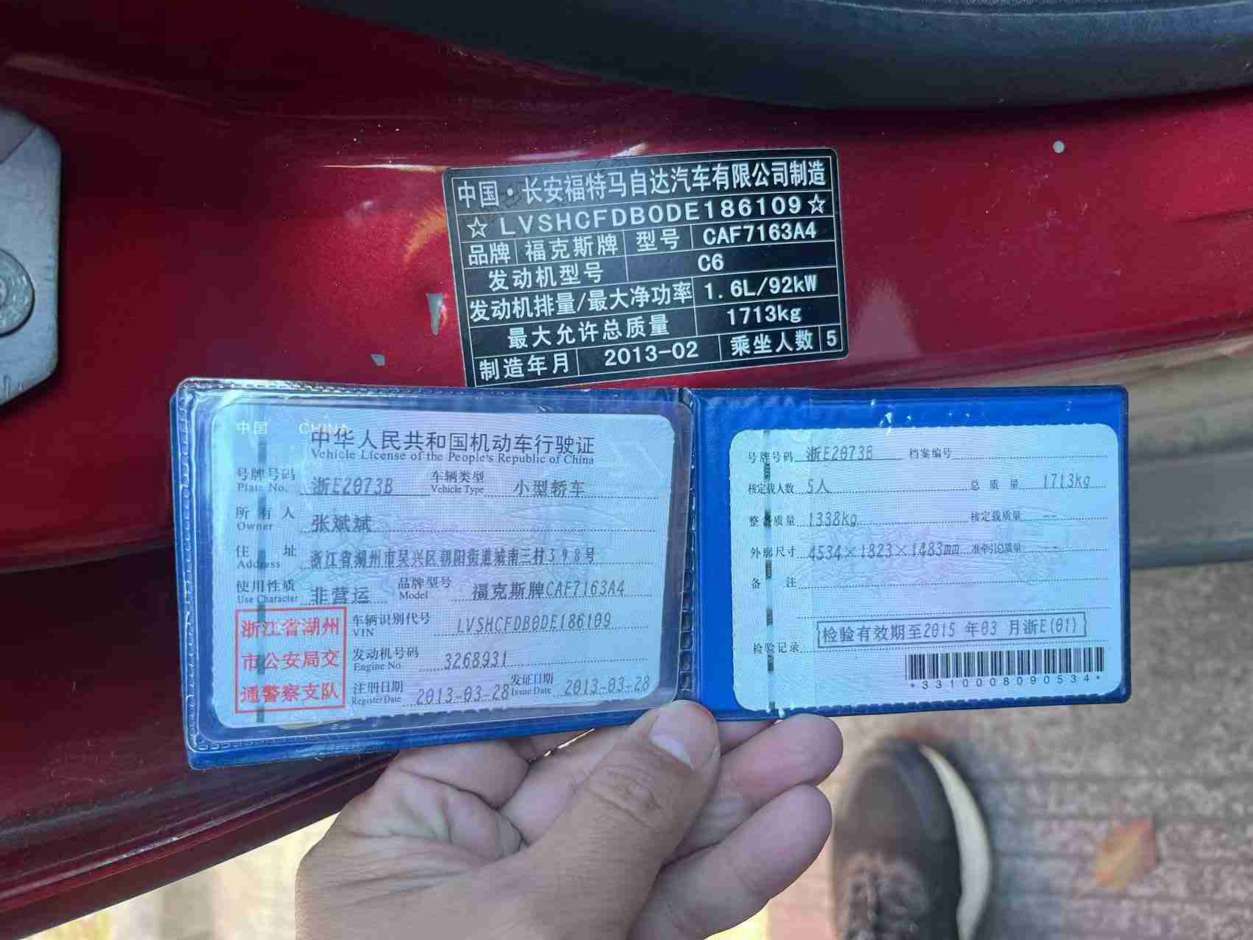 中国·长安福特马自达汽车有限公司制造
☆LVSHCFDB0DE186109☆
品牌 福克斯牌 型号 CAF7163A4
发动机型号 C6
发动机排量/最大净功率 1.6L/92kW
最大允许总质量 1713kg
制造年月 2013-02 乘坐人数 5
中国 CHINA
中华人民共和国机动车行驶证
Vehicle License of the People's Republic of China
号牌号码 浙E2073B 车辆类型 小型轿车
Plate No. Vehicle Type
所有人 张斌斌
Owner
住址 浙江省湖州市吴兴区朝阳街道城南三村398号
Address
使用性质 非营运 品牌型号 福克斯牌CAF7163A4
Use Character Model
浙江省湖州
市公安局交
通警察支队
车辆识别代号 LVSHCFDB0DE186109
VIN
发动机号码 3268931
Engine No.
注册日期 2013-03-28 发证日期 2013-03-28
Register Date Issue Date
号牌号码 浙E2073B 档案编号
核定载人数 5人 总质量 1713kg
整备质量 1338kg 核定载质量 --
外廓尺寸 4534×1823×1483mm 准牵引总质量 --
备注
检验记录 检验有效期至2015年03月浙E(01)
*3310008090534*